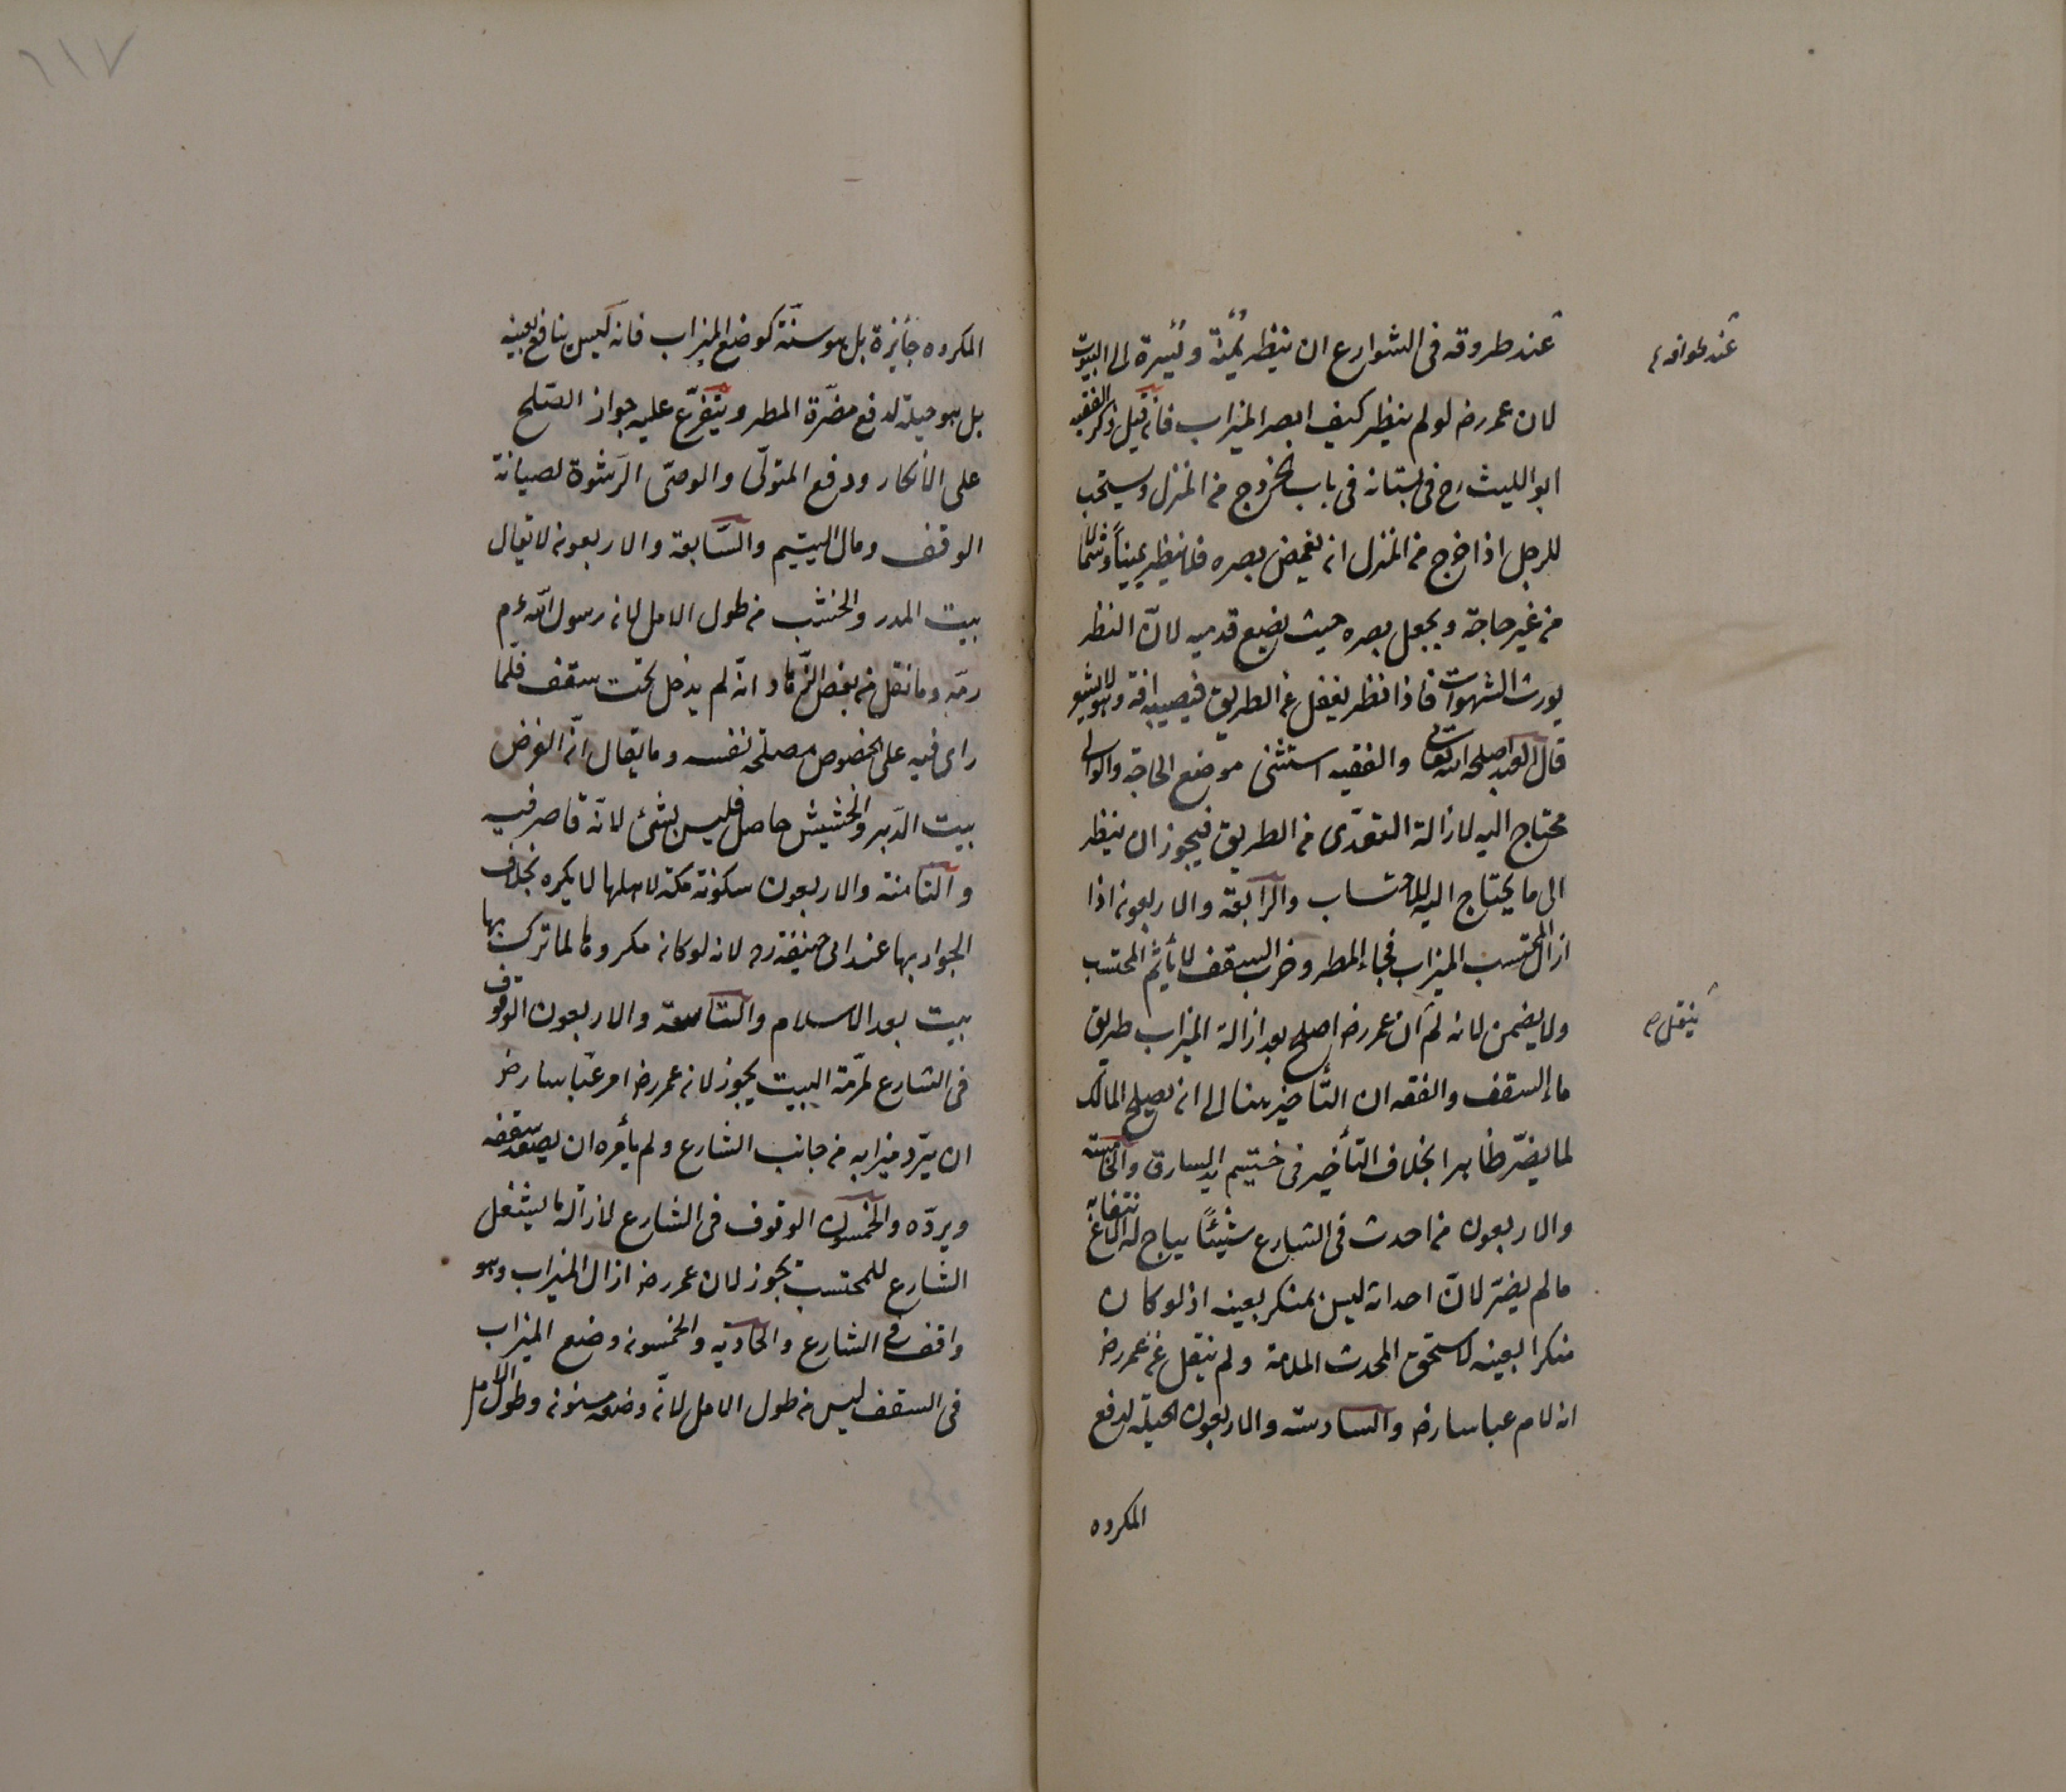 عند طروقه فى الشوارع ان ينظر يمنة و يسرة الى البيوت
عند طوافه
لان عمر رض لو لم ينظر كيف ابصر الميزاب فان قيل ذكر الفقيه
ابو الليث رح فى بستانه فى باب الخروج من المنزل ويستحب
للرجل اذا خرج من المنزل ان يغمض بصره فلا ينظر يمينا وشمالا
من غير حاجة و يجعل بصره حيث يضع قدميه لان النظر
يورث الشهوات فاذا نظر يغفل عن الطريق فيصيبه افة وهو لا يشعر
قال العبد اصلحه الله تعالى والفقيه استثنى موضع الحاجة والوالى
محتاج اليه لازالة التعدى من الطريق فيجوز ان ينظر
الى ما يحتاج اليه للاحتساب والرابعة والاربعون اذا
ازال المحتسب الميزاب فجاء المطر و خرب السقف لا يأثم المحتسب
ولا يضمن لانه لم ان عمر رض اصلح بعد ازالة الميزاب طريق
ينقل صح
ماء السقف والفقه ان التأخير هنا الى ان يصلح المالك
لما يضر ظاهرا بخلاف التأخير فى يد السارق والخامسة
والاربعون من احدث فى الشارع شيئا يباح له الانتفاع به
ما لم يضر لان احداثه ليس بمنكر بعينه اذ لو كان
منكرا بعينه لاستحق المحدث الملامة ولم ينقل عن عمر رض
انه لام عباسا رض والسادسة والاربعون الحيلة لدفع
المكروه
٦١٧
المكروه جائزة بل هو سنة كوضع الميزاب فانه ليس بنافع بعينه
بل هو حيلة لدفع مضرة المطر و يتفرع عليه جواز الصلح
على الانكار و دفع المتولى والوصى الرشوة لصيانة
الوقف و مال اليتيم والسابعة والاربعون لا يقال
بيت المدر والخشب من طول الامل لان رسول الله ءم
رمه وما نقل من بعض الزهاد انه لم يدخل تحت سقف فلما
راى فيه على الخصوص مصلحة نفسه وما يقال ان الغرض
بيت الدبر والحشيش حاصل فليس بشئ لانه قاصر فيه
والثامنة والاربعون سكونة مكة لاهلها لا يكره بخلاف
الجوار بها عند ابى حنيفة ره لانه لو كان مكروها لما ترك بها
بيت بعد الاسلام والتاسعة والاربعون الوقوف
فى الشارع لمرمة البيت يجوز لان عمر رض امر عباسا رض
ان يرد ميزابه من جانب الشارع و لم يأمره ان يصعد سقفه
ويرده والخمسون الوقوف فى الشارع لازالة ما يشغل
الشارع للمحتسب يجوز لان عمر رض ازال الميزاب وهو
واقف فى الشارع والحادية والخمسون وضع الميزاب
فى السقف ليس من طول الامل لانه وضعه مسنون وطول الامل